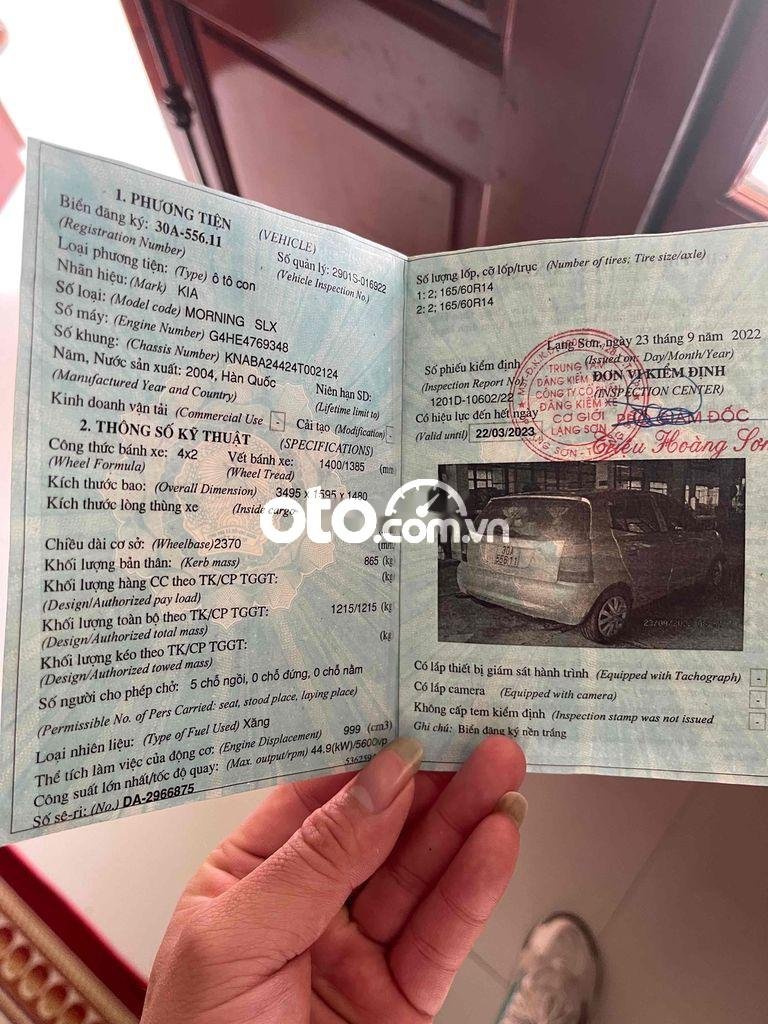 1. PHƯƠNG TIỆN (VEHICLE)
Biển đăng ký: 30A-556.11
(Registration Number)
Số quản lý: 2901S-016922
(Vehicle Inspection No.)
Loại phương tiện: (Type) ô tô con
Nhãn hiệu: (Mark) KIA
Số loại: (Model code) MORNING SLX
Số máy: (Engine Number) G4HE4769348
Số khung: (Chassis Number) KNABA24424T002124
Năm, Nước sản xuất: 2004, Hàn Quốc
(Manufactured Year and Country)
Niên hạn SD:
(Lifetime limit to)
Kinh doanh vận tải (Commercial Use) - Cải tạo (Modification) -
2. THÔNG SỐ KỸ THUẬT (SPECIFICATIONS)
Công thức bánh xe: 4x2 Vết bánh xe: 1400/1385 (mm
(Wheel Formula) (Wheel Tread)
Kích thước bao: (Overall Dimension) 3495 x 1595 x 1480
Kích thước lòng thùng xe (Inside cargo
Chiều dài cơ sở: (Wheelbase)2370 (mm
Khối lượng bản thân: (Kerb mass) 865 (kg
Khối lượng hàng CC theo TK/CP TGGT: (kg
(Design/Authorized pay load)
Khối lượng toàn bộ theo TK/CP TGGT: 1215/1215 (kg
(Design/Authorized total mass)
Khối lượng kéo theo TK/CP TGGT: (kg
(Design/Authorized towed mass)
Số người cho phép chở: 5 chỗ ngồi, 0 chỗ đứng, 0 chỗ nằm
(Permissible No. of Pers Carried: seat, stood place, laying place)
Loại nhiên liệu: (Type of Fuel Used) Xăng
Thể tích làm việc của động cơ: (Engine Displacement) 999 (cm3)
Công suất lớn nhất/tốc độ quay: (Max. output/rpm) 44.9(kW)/5600vp
Số sê-ri: (No.) DA-2966875
Số lượng lốp, cỡ lốp/trục (Number of tires; Tire size/axle)
1: 2; 165/60R14
2: 2; 165/60R14
Lạng Sơn, ngày 23 tháng 9 năm 2022
(Issued on: Day/Month/Year)
Số phiếu kiểm định
(Inspection Report No
1201D-10602/22
ĐƠN VỊ KIỂM ĐỊNH
(INSPECTION CENTER)
Có hiệu lực đến hết ngày
(Valid until) 22/03/2023
TRUNG TÂM
ĐĂNG KIỂM
CÔNG TY CỔ
ĐĂNG KIỂM XE
CƠ GIỚI
LẠNG SƠN
PHÓ GIÁM ĐỐC
Triệu Hoàng Sơn
30A
556.11
oto.com.vn
Có lắp thiết bị giám sát hành trình (Equipped with Tachograph) -
Có lắp camera (Equipped with camera) -
Không cấp tem kiểm định (Inspection stamp was not issued -
Ghi chú: Biển đăng ký nền trắng